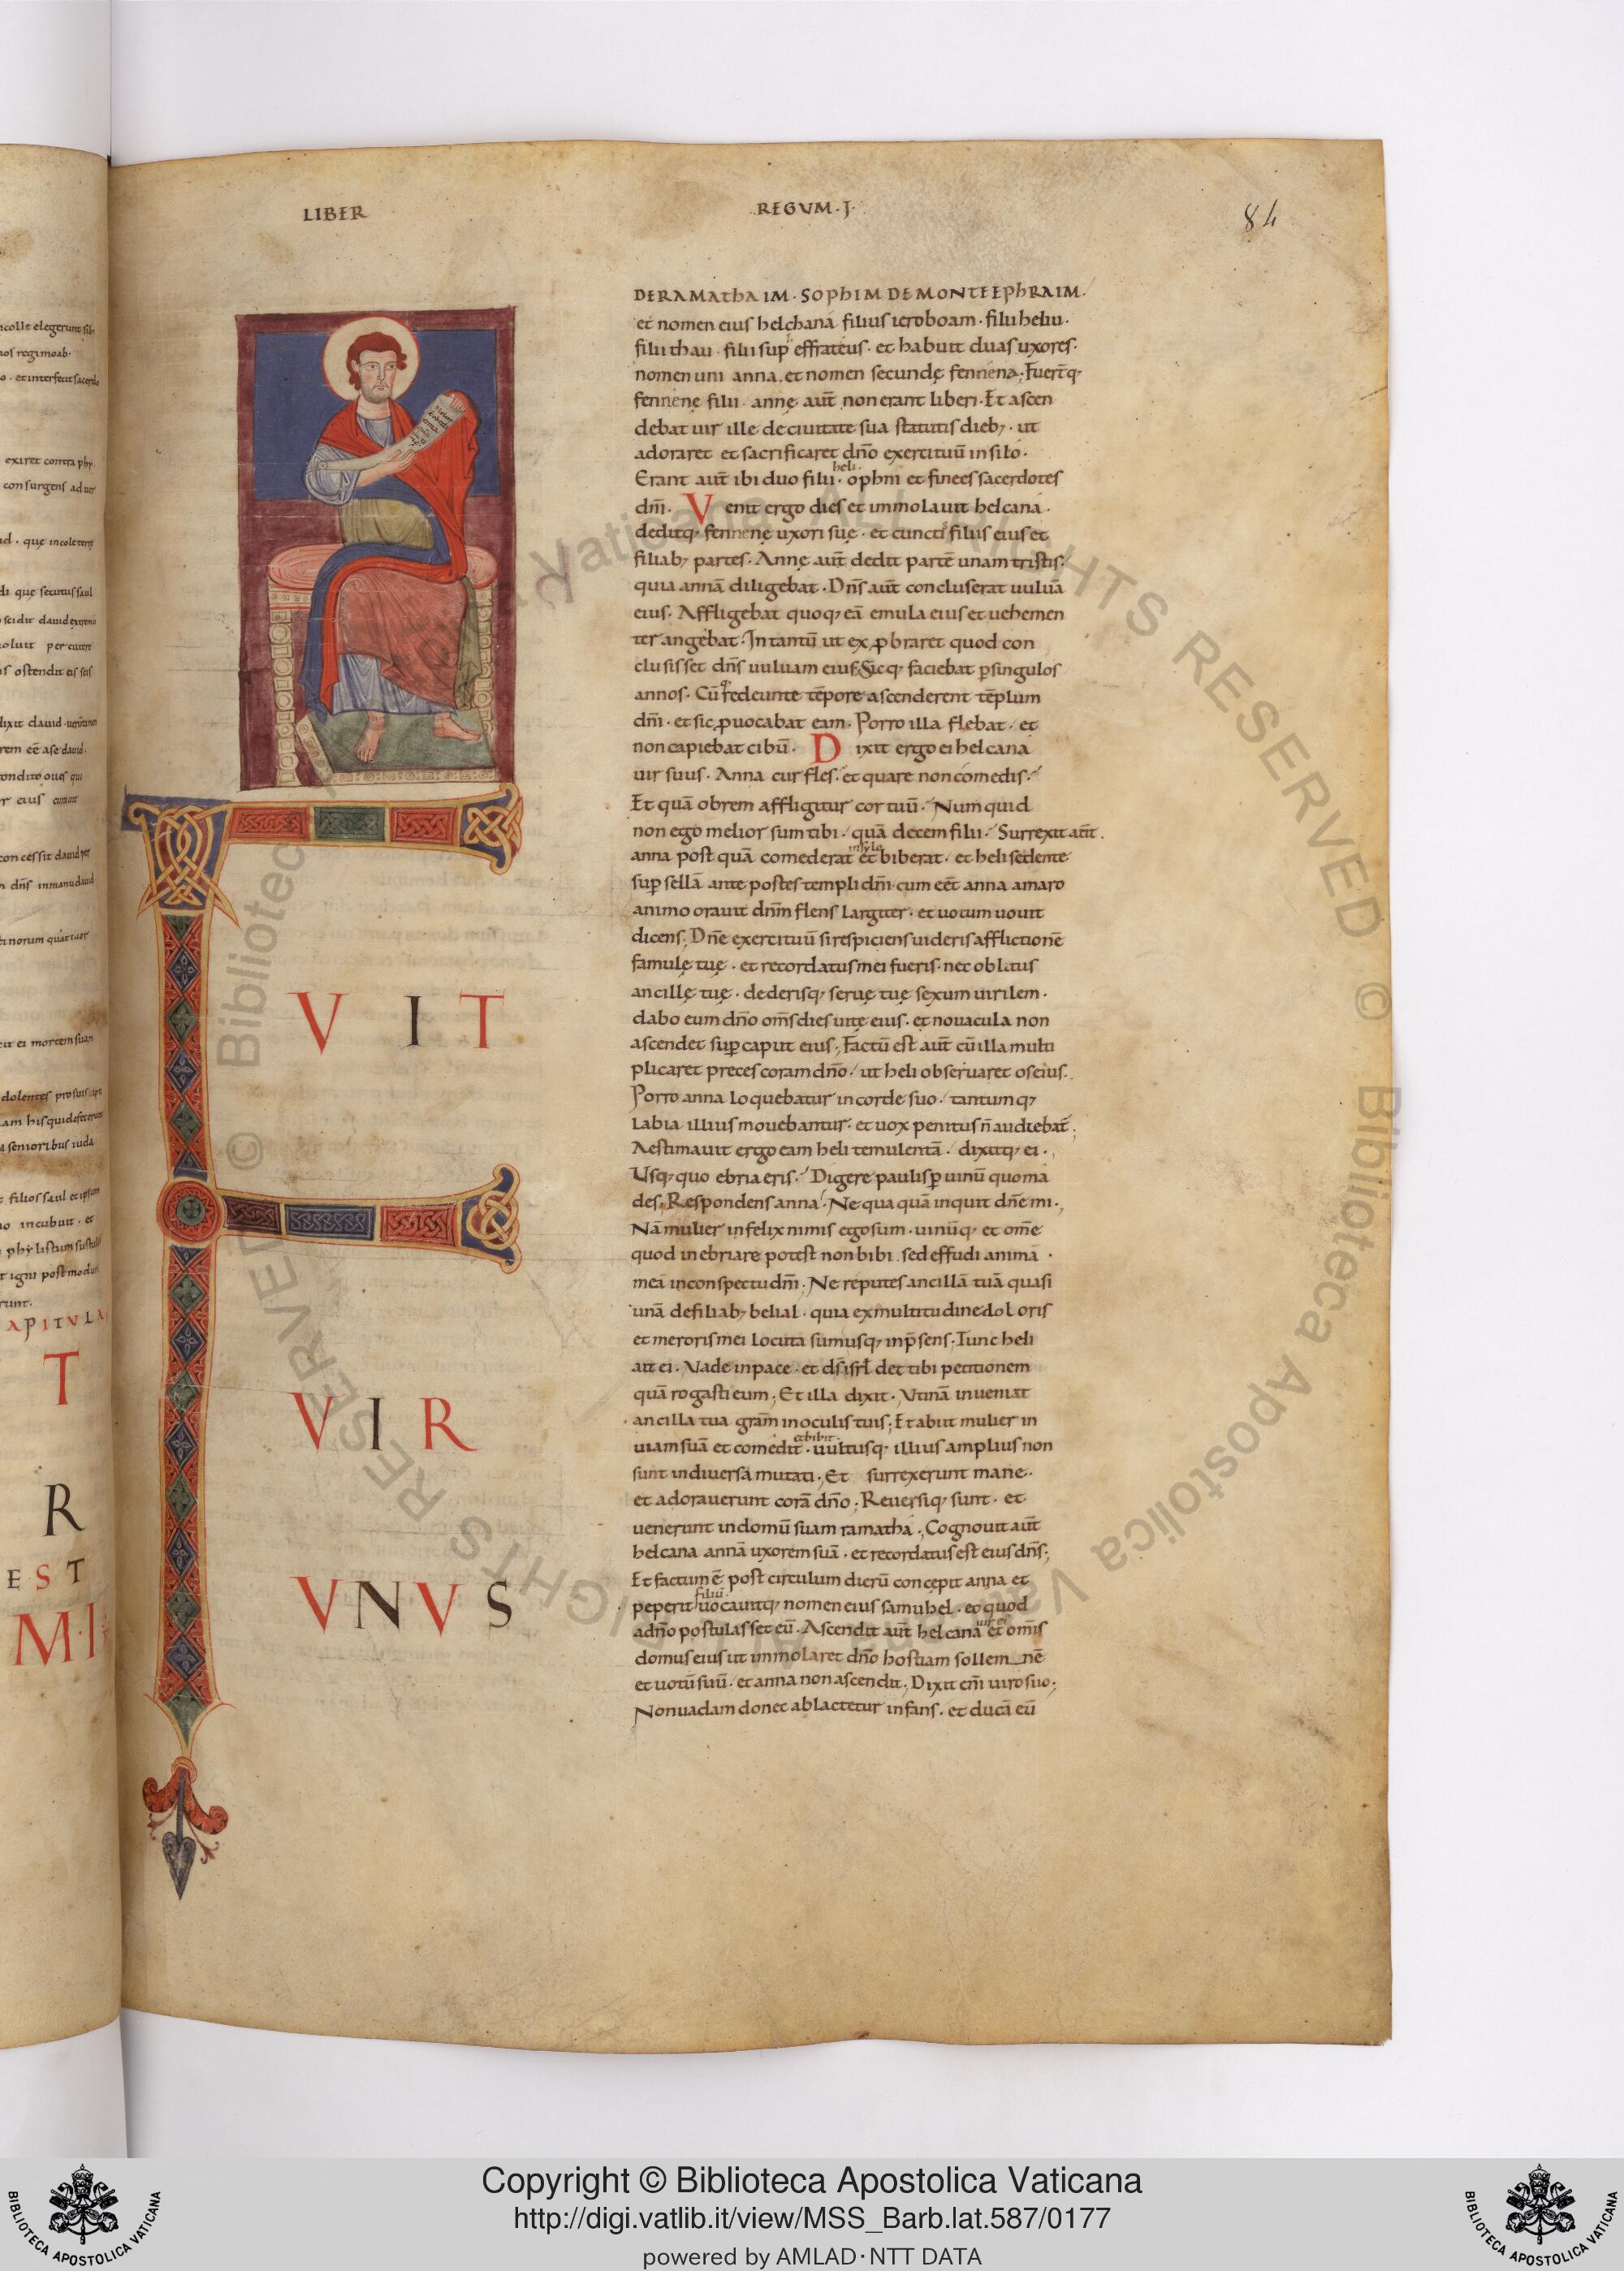 LIBER
REGVM · I ·
84
F
VIT
VIR
VNVS
DERAMAThAIM · SOPhIM DEMONTEEPhRAIM.
et nomen eius helchana filius ieroboam · filii heliu ·
filii thau · filii sup effrateus · et habuit duas uxores ·
nomen uni anna · et nomen secundę fennena; Fuer̄tq;
fennenę filii · annę aut̄ non erant liberi · Et ascen
debat uir ille de ciuitate sua statutis dieb; · ut
adoraret et sacrificaret dn̄o exercituū in silo ·
Erant aut̄ ibi duo filii heli · ophni et finees sacerdotes
dn̄i · Venit ergo dies et immolauit helcana ·
deditq; fennenę uxori suę · et cunctis filiis eius et
filiab; partes · Annę aut̄ dedit partē unam tristis ·
quia annā diligebat · Dn̄s aut̄ concluserat uuluā
eius · Affligebat quoq; eā emula eius et uehemen
ter angebat · In tantū ut exꝓbraret quod con
clusisset dn̄s uuluam eius; Sicq; faciebat ꝑ singulos
annos · Cū redeunte tēpore ascenderent tēplum
dn̄i · et sic ꝓuocabat eam · Porro illa flebat · et
non capiebat cibū · Dixit ergo ei helcana
uir suus · Anna cur fles · et quare non comedis ·
Et quā obrem affligitur cor tuū · Numquid
non ego melior sum tibi · quā decem filii · Surrexit aut̄ ·
anna post quā comederat in sylo et biberat · et heli sedente
suꝑ sellā ante postes templi dn̄i · cum eēt anna amaro
animo orauit dn̄m flens largiter · et uotum uouit
dicens; Dn̄e exercituū si respiciens uideris afflictionē
famulę tuę · et recordatus mei fueris · nec oblitus
ancillę tuę · dederisq; seruę tuę sexum uirilem ·
dabo eum dn̄o om̄s dies uitę eius · et nouacula non
ascendet suꝑ caput eius; Factū est aut̄ cū illa multi
plicaret preces coram dn̄o · ut heli obseruaret os eius ·
Porro anna loquebatur in corde suo · tantumq;
labia illius mouebantur · et uox penitus n̄ audiebat̄;
Aestimauit ergo eam heli temulentā · dixitq; ei ·
Usq; quo ebria eris · Digere paulisꝑ uinū quo ma
des; Respondens anna · Ne qua quā inquit dn̄e mi ·
Nā mulier infelix nimis ego sum · uinūq; et om̄e
quod inebriare potest non bibi · sed effudi animā ·
meā in conspectu dn̄i · Ne reputes ancillā tuā quasi
unā de filiab; belial · quia ex multitudine doloris
et meroris mei locuta sumusq; inp̄sens · Tunc heli
ait ei · Vade in pace · et ds̄ isrl̄ det tibi petitionem
quā rogasti eum; Et illa dixit · Vtinā inueniat
ancilla tua gram̄ in oculis tuis; Et abiit mulier in
uiam suā et comedit et bibit · uultusq; illius amplius non
sunt in diuersa mutati · Et surrexerunt mane ·
et adorauerunt corā dn̄o; Reuersiq; sunt · et
uenerunt in domū suam ramatha; Cognouit aut̄
helcana annā uxorem suā · et recordatus est eius dn̄s;
Et factum ē post circulum dierū concepit anna et
peperit filiū uocauitq; nomen eius samuhel · eo quod
a dn̄o postulasset eū · Ascendit aut̄ helcana uir ei et om̄is
domus eius ut immolaret dn̄o hostiam sollemnē
et uotū suū · et anna non ascendit; Dixit em̄ uiro suo;
Non uadam donec ablactetur infans · et ducā eū
T
R
EST
Copyright © Biblioteca Apostolica Vaticana
http://digi.vatlib.it/view/MSS_Barb.lat.587/0177
powered by AMLAD·NTT DATA
BIBLIOTECA APOSTOLICA VATICANA
BIBLIOTECA APOSTOLICA VATICANA